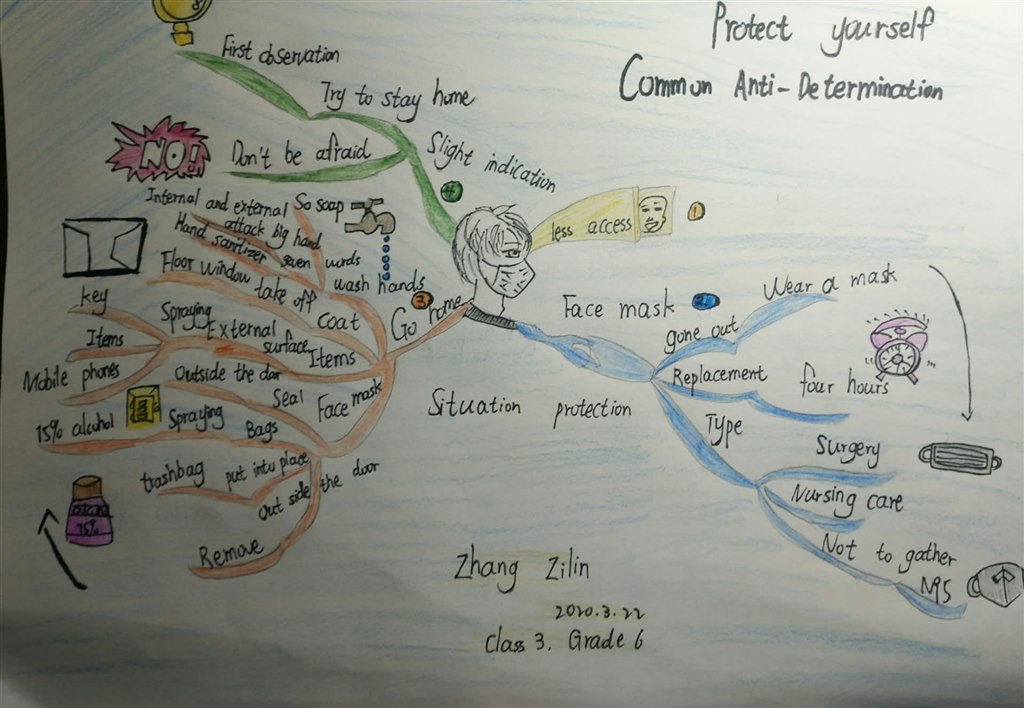 Protect yourself
Common Anti-Determination
First observation
Try to stay home
Slight indication
④
NO!
Don't be afraid
less access
①
Face mask
②
Wear a mask
gone out
Replacement
four hours
Type
Surgery
Nursing care
Not to gather
N95
Situation protection
Go home
③
wash hands
So soap
Internal and external
attack big hand
Hand sanitizer seven words
Floor window take off
coat
Items
External surface
Spraying
key
Items
Mobile phones
Face mask
Outside the door
Seal
75% alcohol
Spraying
Bags
trashbag
put into place
Out side the door
Remove
75%
Zhang Zilin
2020.3.22
Class 3. Grade 6